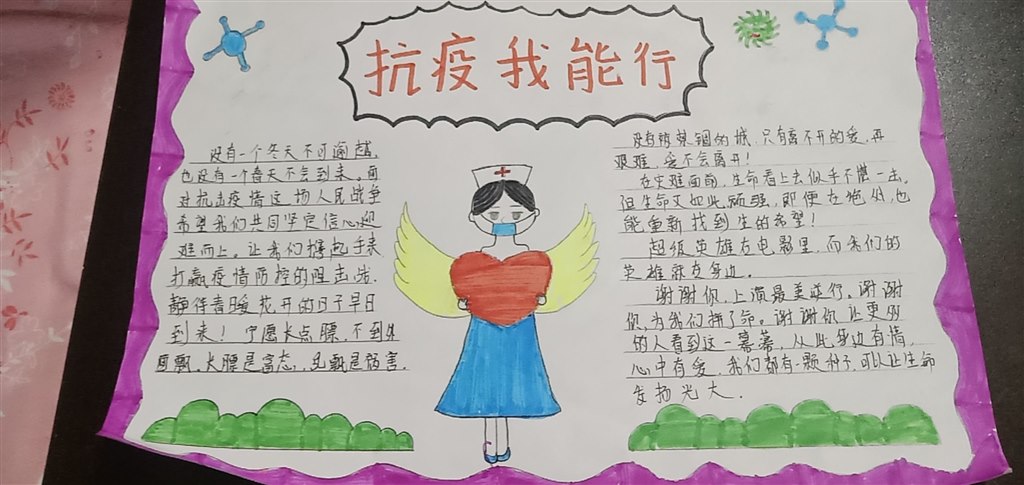 抗疫我能行
没有一个冬天不可逾越,
也没有一个春天不会到来。面
对抗击疫情这场人民战争
希望我们共同坚定信心迎
难而上。让我们携起手来
打赢疫情防控的阻击战.
静待春暖花开的日子早日
到来！宁愿长点膘,不到外
面飘。长膘是富态,乱飘是祸害.
没有被禁锢的城,只有离不开的爱,再
艰难,爱不会离开!
在灾难面前,生命看上去似乎不堪一击,
但生命又如此顽强,即便在绝处,也
能重新找到生的希望!
超级英雄在电影里,而我们的
英雄就在身边.
谢谢你,上演最美逆行。谢谢
你,为我们拼了命。谢谢你让更多
的人看到这一幕幕,从此身边有情,
心中有爱,我们都有一颗种子,可以让生命
发扬光大.